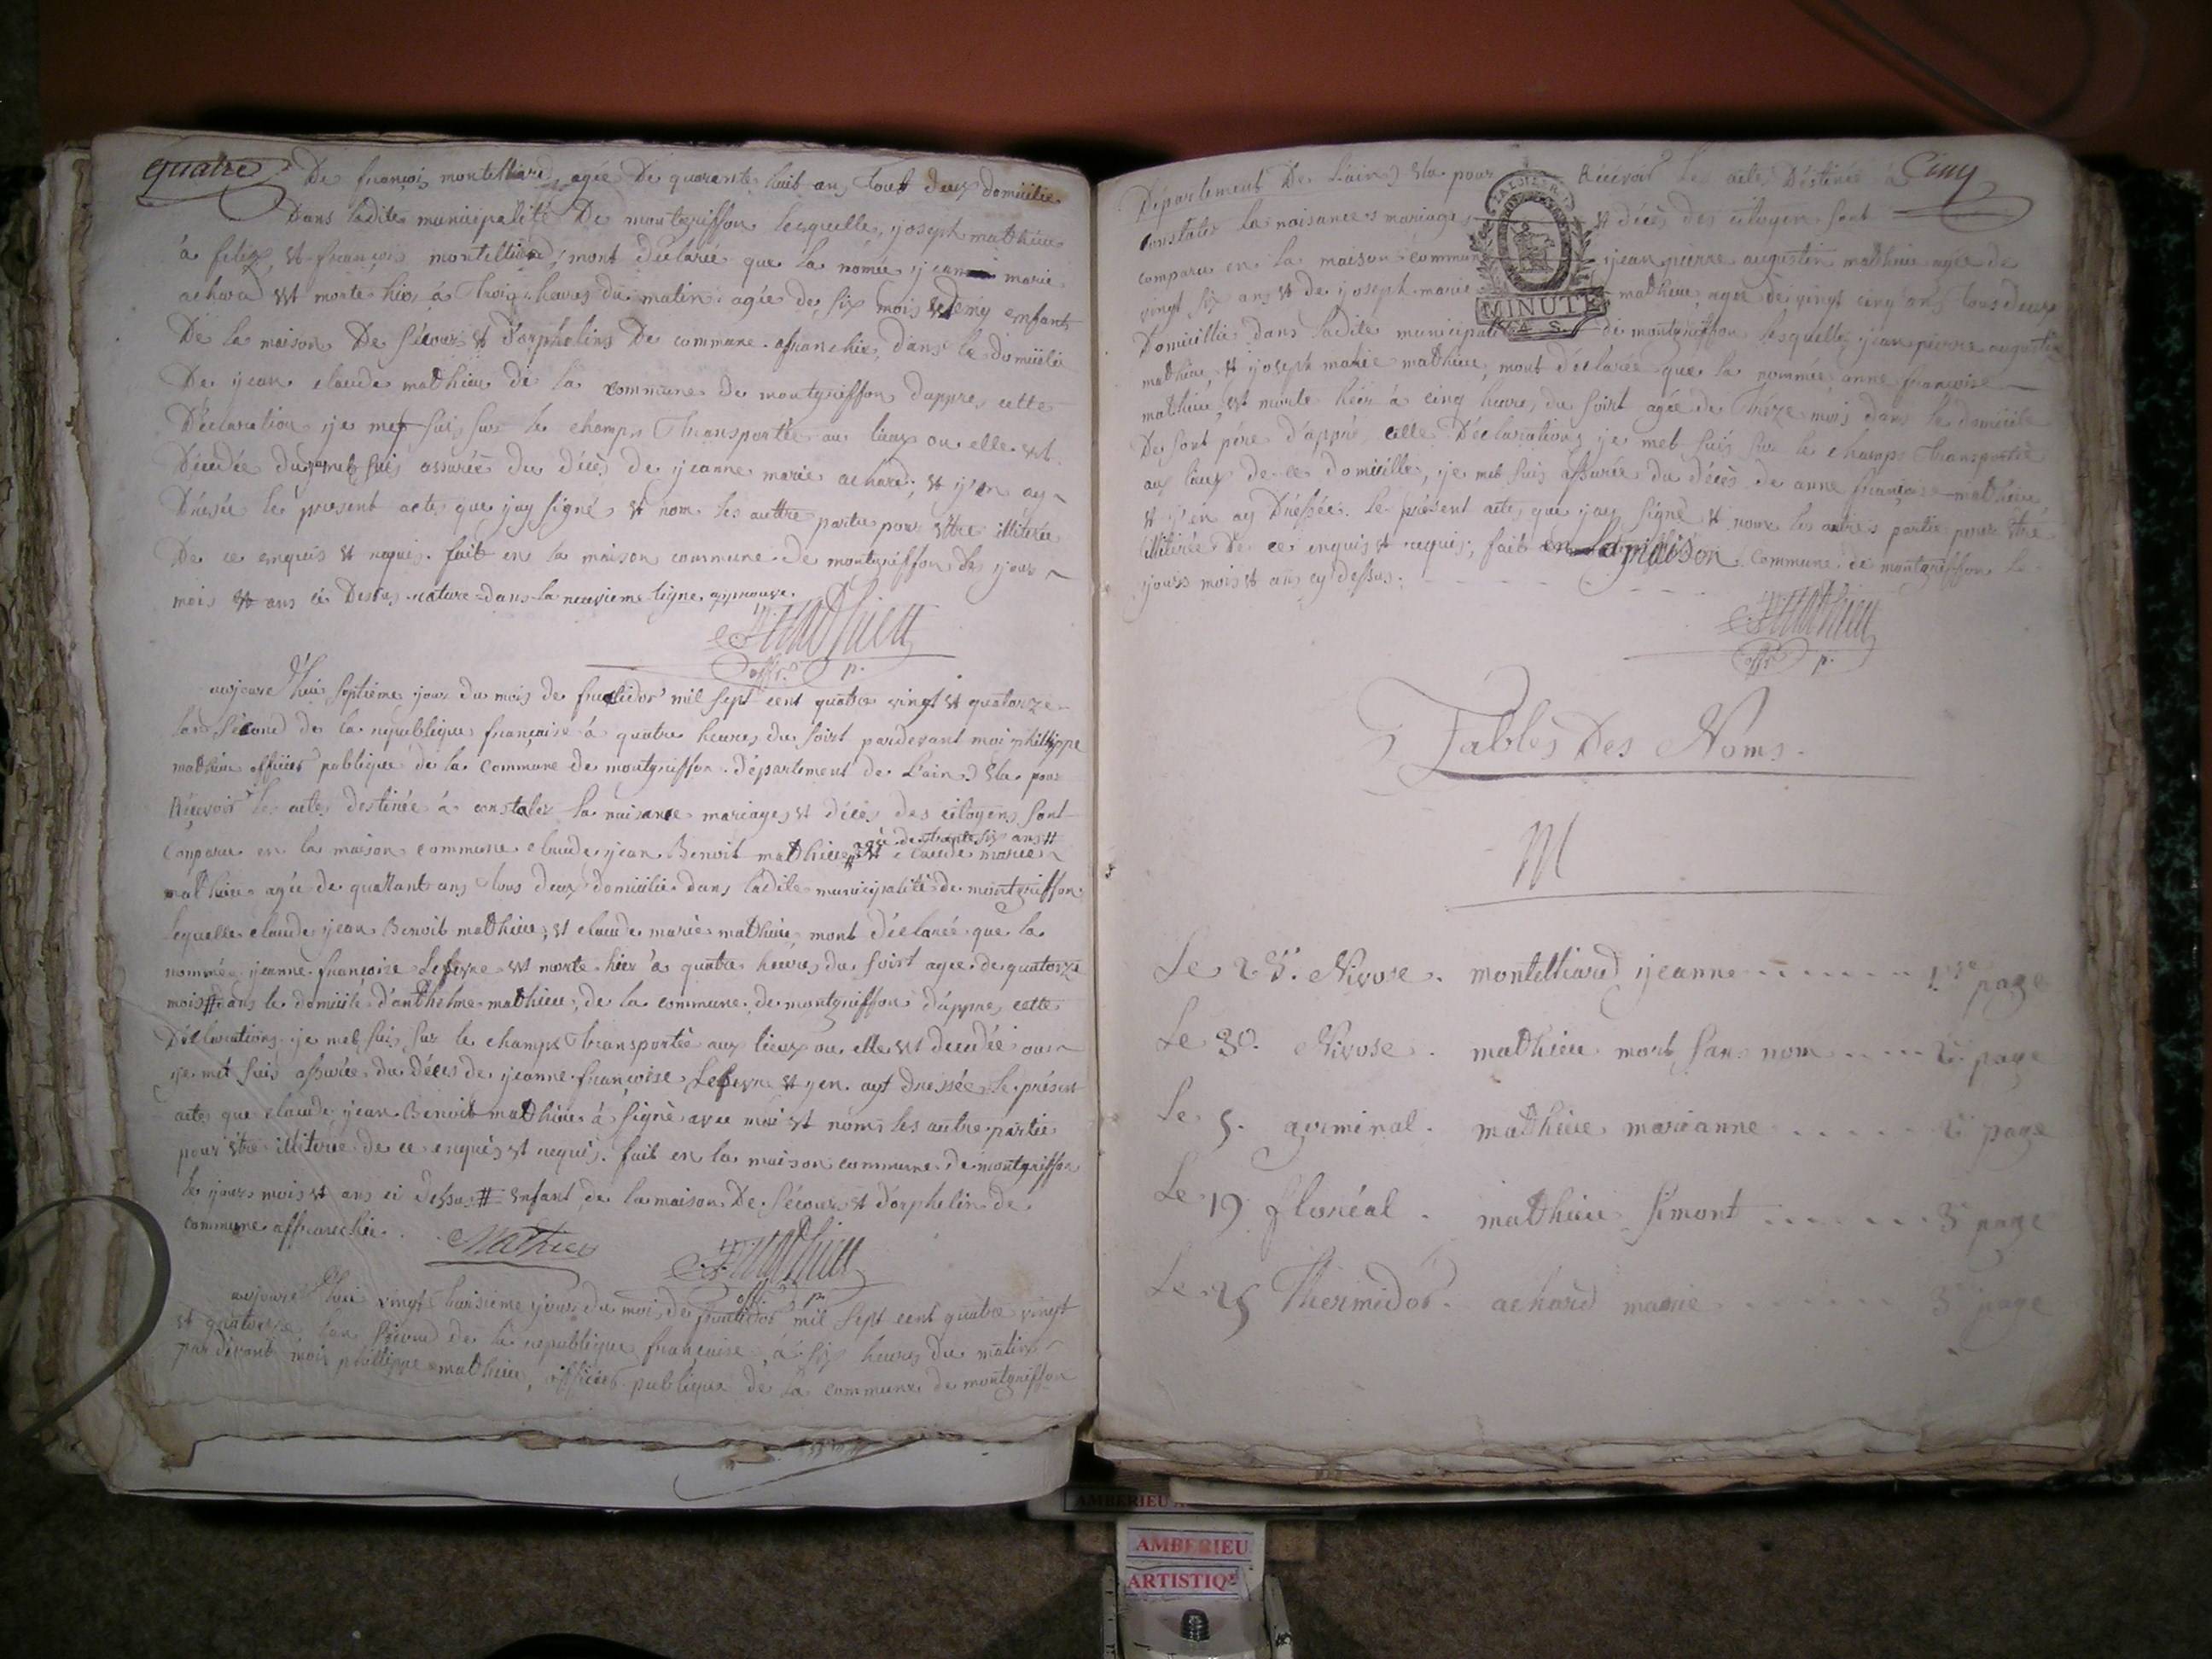 quatre
De françois montelliard, agée De quarante huit ans Tout deux domicilie
Dans ladite municipalité De montgriffon lesquelle, joseph mathieu
à felix, et françois montelliard, mont déclarée que la nomée jeanne marie
achard est morte hier à Trois heures du matin agée de six mois et demy enfants
De la maison De sécour et d'orphelins De commune afranchie, dans le domicile
De jean claude mathieu de la commune de montgriffon dappres cette
Déclaration je met suis sur le champs Transportée au lieux ou elle est
Décédée assurée du décès de jeanne marie achard, et j'en ay
Drésée le present acte que jay signé et nom les auttre partie pour ettre illiterée
De ce enquis et requis. fait en la maison commune de montgriffon les jour
mois et ans ci Dessus rature dans la neuvieme ligne approuve.
P. Mathieu
offr. p.
aujourd'hui septième jour du mois de fructidor mil sept cent quatre vingt et quatorze
lan sécond de la republique française à quatre heures du soirt pardevant moi phillippe
mathieu officier publique de la commune de montgriffon département de L'ain Esta pour
Réçevoir les actes destinée à constater la naisance mariages et décès des citoyens sont
Comparu en la maison commune claude jean Benoit mathieu # et claude marie
agée de trente six ans #
mathieu agée de quattant ans tous deux domicilie dans ladite municipalité de montgriffon
lequelle claude jean Benoit mathieu, et claude marie mathieu mont déclarée que la
nommée jeanne françoise Lefevre est morte hier à quatre heures du soirt agée de quatorze
mois # dans le domicile d'anthelme mathieu, de la commune de montgriffon d'appres cette
Déclarations je met suis sur le champs transportée aux lieux ou elle est decedée
je met suis assurée du décès de jeanne françoise Lefevre et jen ayt dressée le présent
acte que claude jean Benoit mathieu à signé avec moi et nom les autre partie
pour être illiterée de ce enquis et requis. fait en la maison commune de montgriffon
le jours mois et ans ci dessus # Enfant de la maison De sécours et d'orphelin de
commune affranchie.
Mathieu
P. Mathieu
offr. p.
aujourd'hui vingt huisième jour du mois de fructidor mil sept cent quatre vingt
et quatorze lan sécond de la republique française à six heures du matin
par dévant moi phillippe mathieu, officier publique de la commune de montgriffon
Cinq
Département De L'ain Esta pour Récevoir les actes Déstinée à
Constater la naisances mariages et décès des citoyens sont
comparu en la maison commune jean pierre augustin mathieu agée de
vingt six ans et de joseph marie mathieu agée de vingt cinq ans tous deux
MINUTE
Domicillie dans ladite municipalité de montgriffon lesquelle jean pierre augustin
mathieu et joseph marie mathieu, mont déclarée que la nommée anne françoise
mathieu est morte hier à cinq heures du soirt agée de Trèze mois dans le domicile
De sont pére d'appré celle Déclarations je met suis sur le champs transportée
au lieux de ce domicille, je met suis assurée du décès de anne françoise mathieu
et j'en ay Dressée. le présent acte que jay signé et nom les autres partie pour être
illiterée De ce enquis et requis, fait en la maison commune de montgriffon le
jours mois et ans cy dessus.
P. Mathieu
offr. p.
Tables Des Noms.
M
Le 25. Nivose. montelliard jeanne 1re page
Le 30. Nivose. mathieu mort sans nom 2e page
Le 5. germinal. mathieu marianne 2e page
Le 19 floréal. mathieu simont 3e page
Le 25 Thermidor. achard marie 3e page
AMBERIEU
AMBERIEU
ARTISTIQ